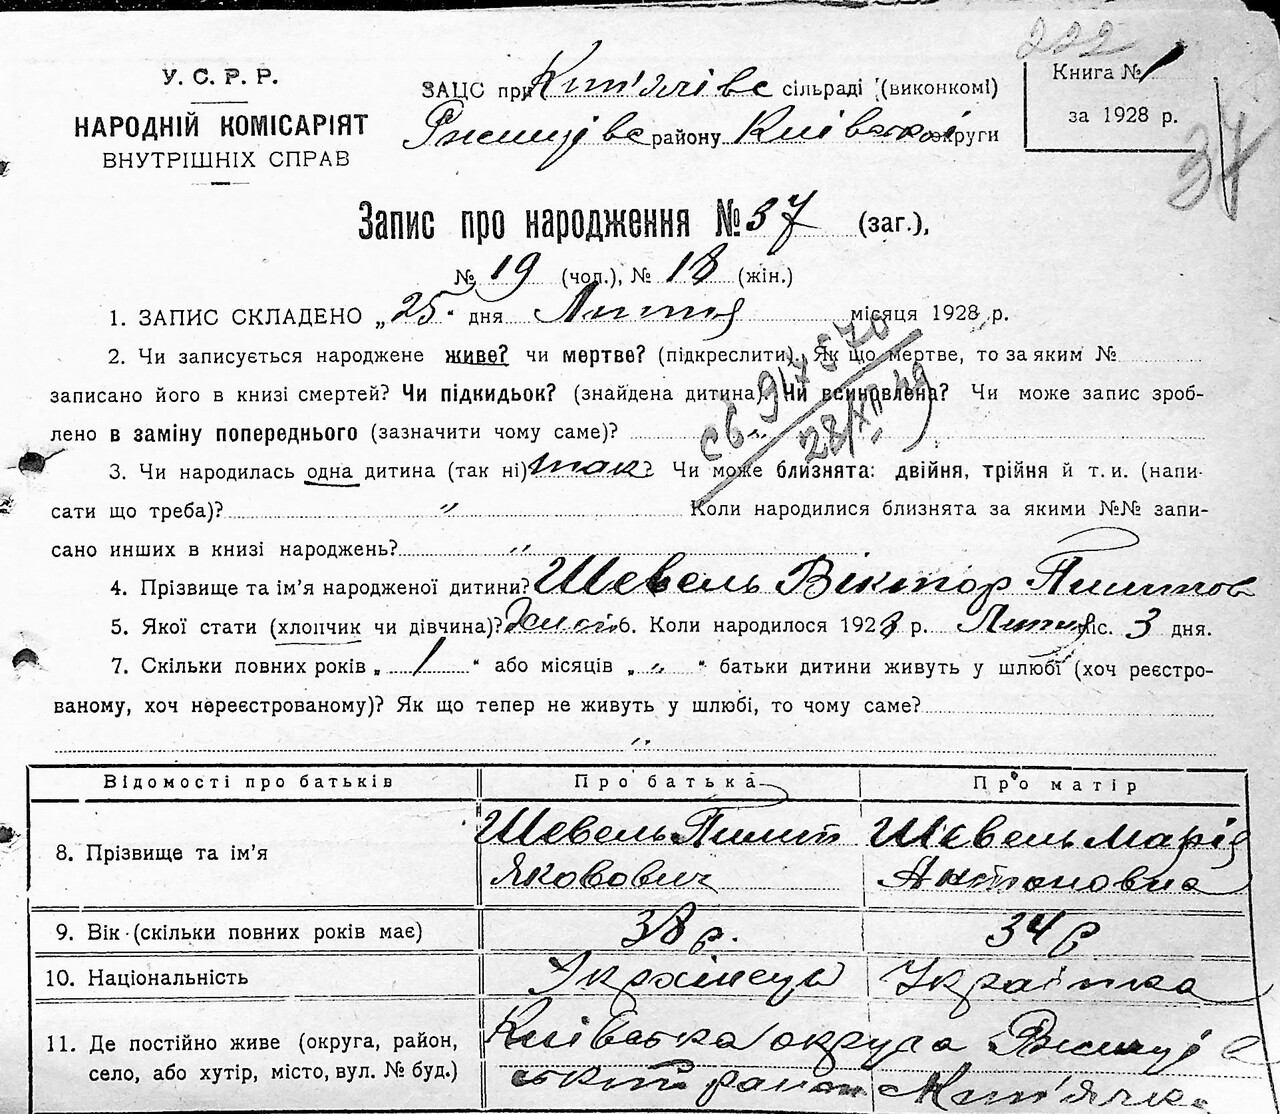 222
У. С. Р. Р.
НАРОДНІЙ КОМІСАРІЯТ
ВНУТРІШНІХ СПРАВ
ЗАЦС при сільраді (виконкомі)
району Київської округи
Книга № 1
за 1928 р.
37
Запис про народження № 37 (заг.),
№ 19 (чол.), № 18 (жін.)
1. ЗАПИС СКЛАДЕНО „25" дня Липня місяця 1928 р.
2. Чи записується народжене живе? чи мертве? (підкреслити). Як що мертве, то за яким №
записано його в книзі смертей? Чи підкидьок? (знайдена дитина) Чи всиновлена? Чи може запис зроб-
лено в заміну попереднього (зазначити чому саме)? "
28/XII 49
3. Чи народилась одна дитина (так ні) так? Чи може близнята: двійня, трійня й т. и. (напи-
сати що треба)? " Коли народилися близнята за якими №№ запи-
сано инших в книзі народжень? "
4. Прізвище та ім'я народженої дитини? Шевель Віктор Пилипов
5. Якої стати (хлопчик чи дівчина)? 6. Коли народилося 1928 р. Липня міс. 3 дня.
7. Скільки повних років „ 1 " або місяців „ " " батьки дитини живуть у шлюбі (хоч реєстро-
ваному, хоч нереєстрованому)? Як що тепер не живуть у шлюбі, то чому саме?
"
Відомості про батьків Про батька Про матір
8. Прізвище та ім'я Шевель Пилип Яковович Шевель Марія Антоновна
9. Вік (скільки повних років має) 38 р. 34 р
10. Національність Українець Українка
11. Де постійно живе (округа, район, Київська округа
село, або хутір, місто, вул. № буд.) район